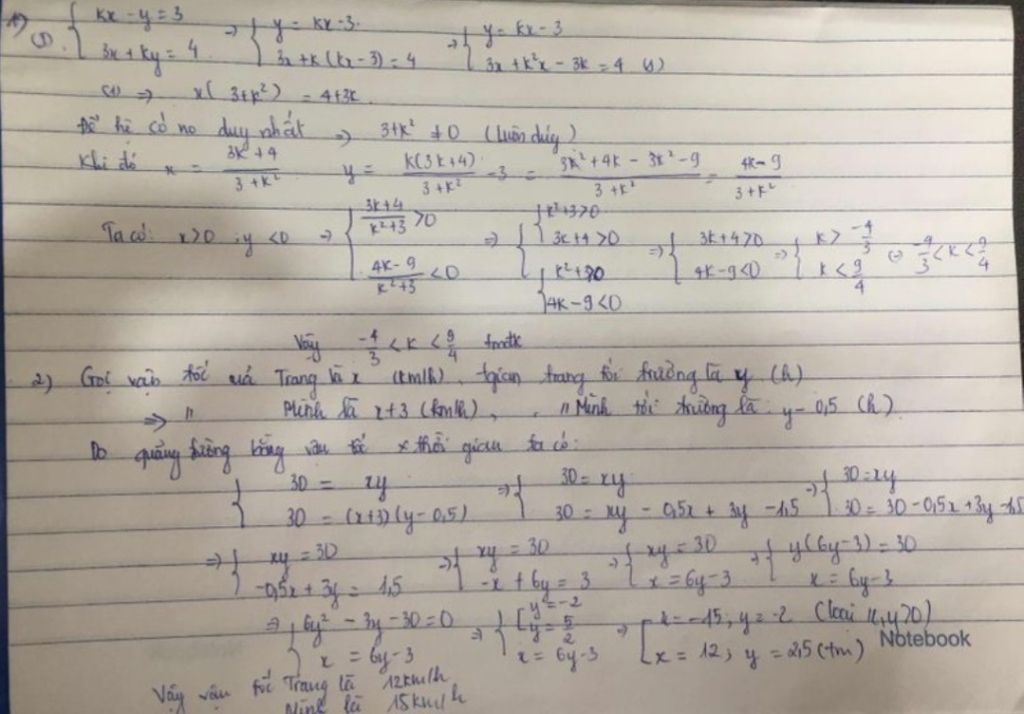 1) { kx - y = 3 => { y = kx - 3 => { y = kx - 3
(I). { 3x + ky = 4 { 3x + k(kx - 3) = 4 { 3x + k²x - 3k = 4 (1)
(1) => x( 3+k² ) = 4+3k
Để hệ có no duy nhất => 3+k² ≠ 0 (luôn đúng)
Khi đó x = (3k+4)/(3+k²) y = k(3k+4)/(3+k²) - 3 = (3k²+4k-3k²-9)/(3+k²) = (4k-9)/(3+k²)
Ta có: x>0 ; y<0 => { (3k+4)/(k²+3) > 0 ; (4k-9)/(k²+3) < 0 => { { k²+3>0 ; 3k+4>0 ; { k²+3>0 ; 4k-9<0 => { 3k+4>0 ; 4k-9<0 => { k > -4/3 ; k < 9/4 (=) -4/3 < k < 9/4
Vậy -4/3 < k < 9/4 tmđk
2) Gọi vận tốc của Trang là x (km/h), tgian trang tới trường là y (h)
=> " Minh là x+3 (km/h), " Minh tới trường là: y - 0,5 (h)
Do quãng đường bằng vận tốc x thời gian ta có:
{ 30 = xy => { 30 = xy => { 30 = xy
{ 30 = (x+3)(y-0,5) { 30 = xy - 0,5x + 3y - 1,5 { 30 = 30 - 0,5x + 3y - 1,5
=> { xy = 30 => { xy = 30 => { xy = 30 => { y(6y-3) = 30
{ -0,5x + 3y = 1,5 { -x + 6y = 3 { x = 6y-3 { x = 6y-3
=> { 6y² - 3y - 30 = 0 => { [ y = -2 ; y = 5/2 => [ x = -15; y = -2 (loại x,y>0)
{ x = 6y-3 { x = 6y-3 [ x = 12; y = 2,5 (tm)
Notebook
Vậy vận tốc Trang là 12km/h
Minh là 15km/h